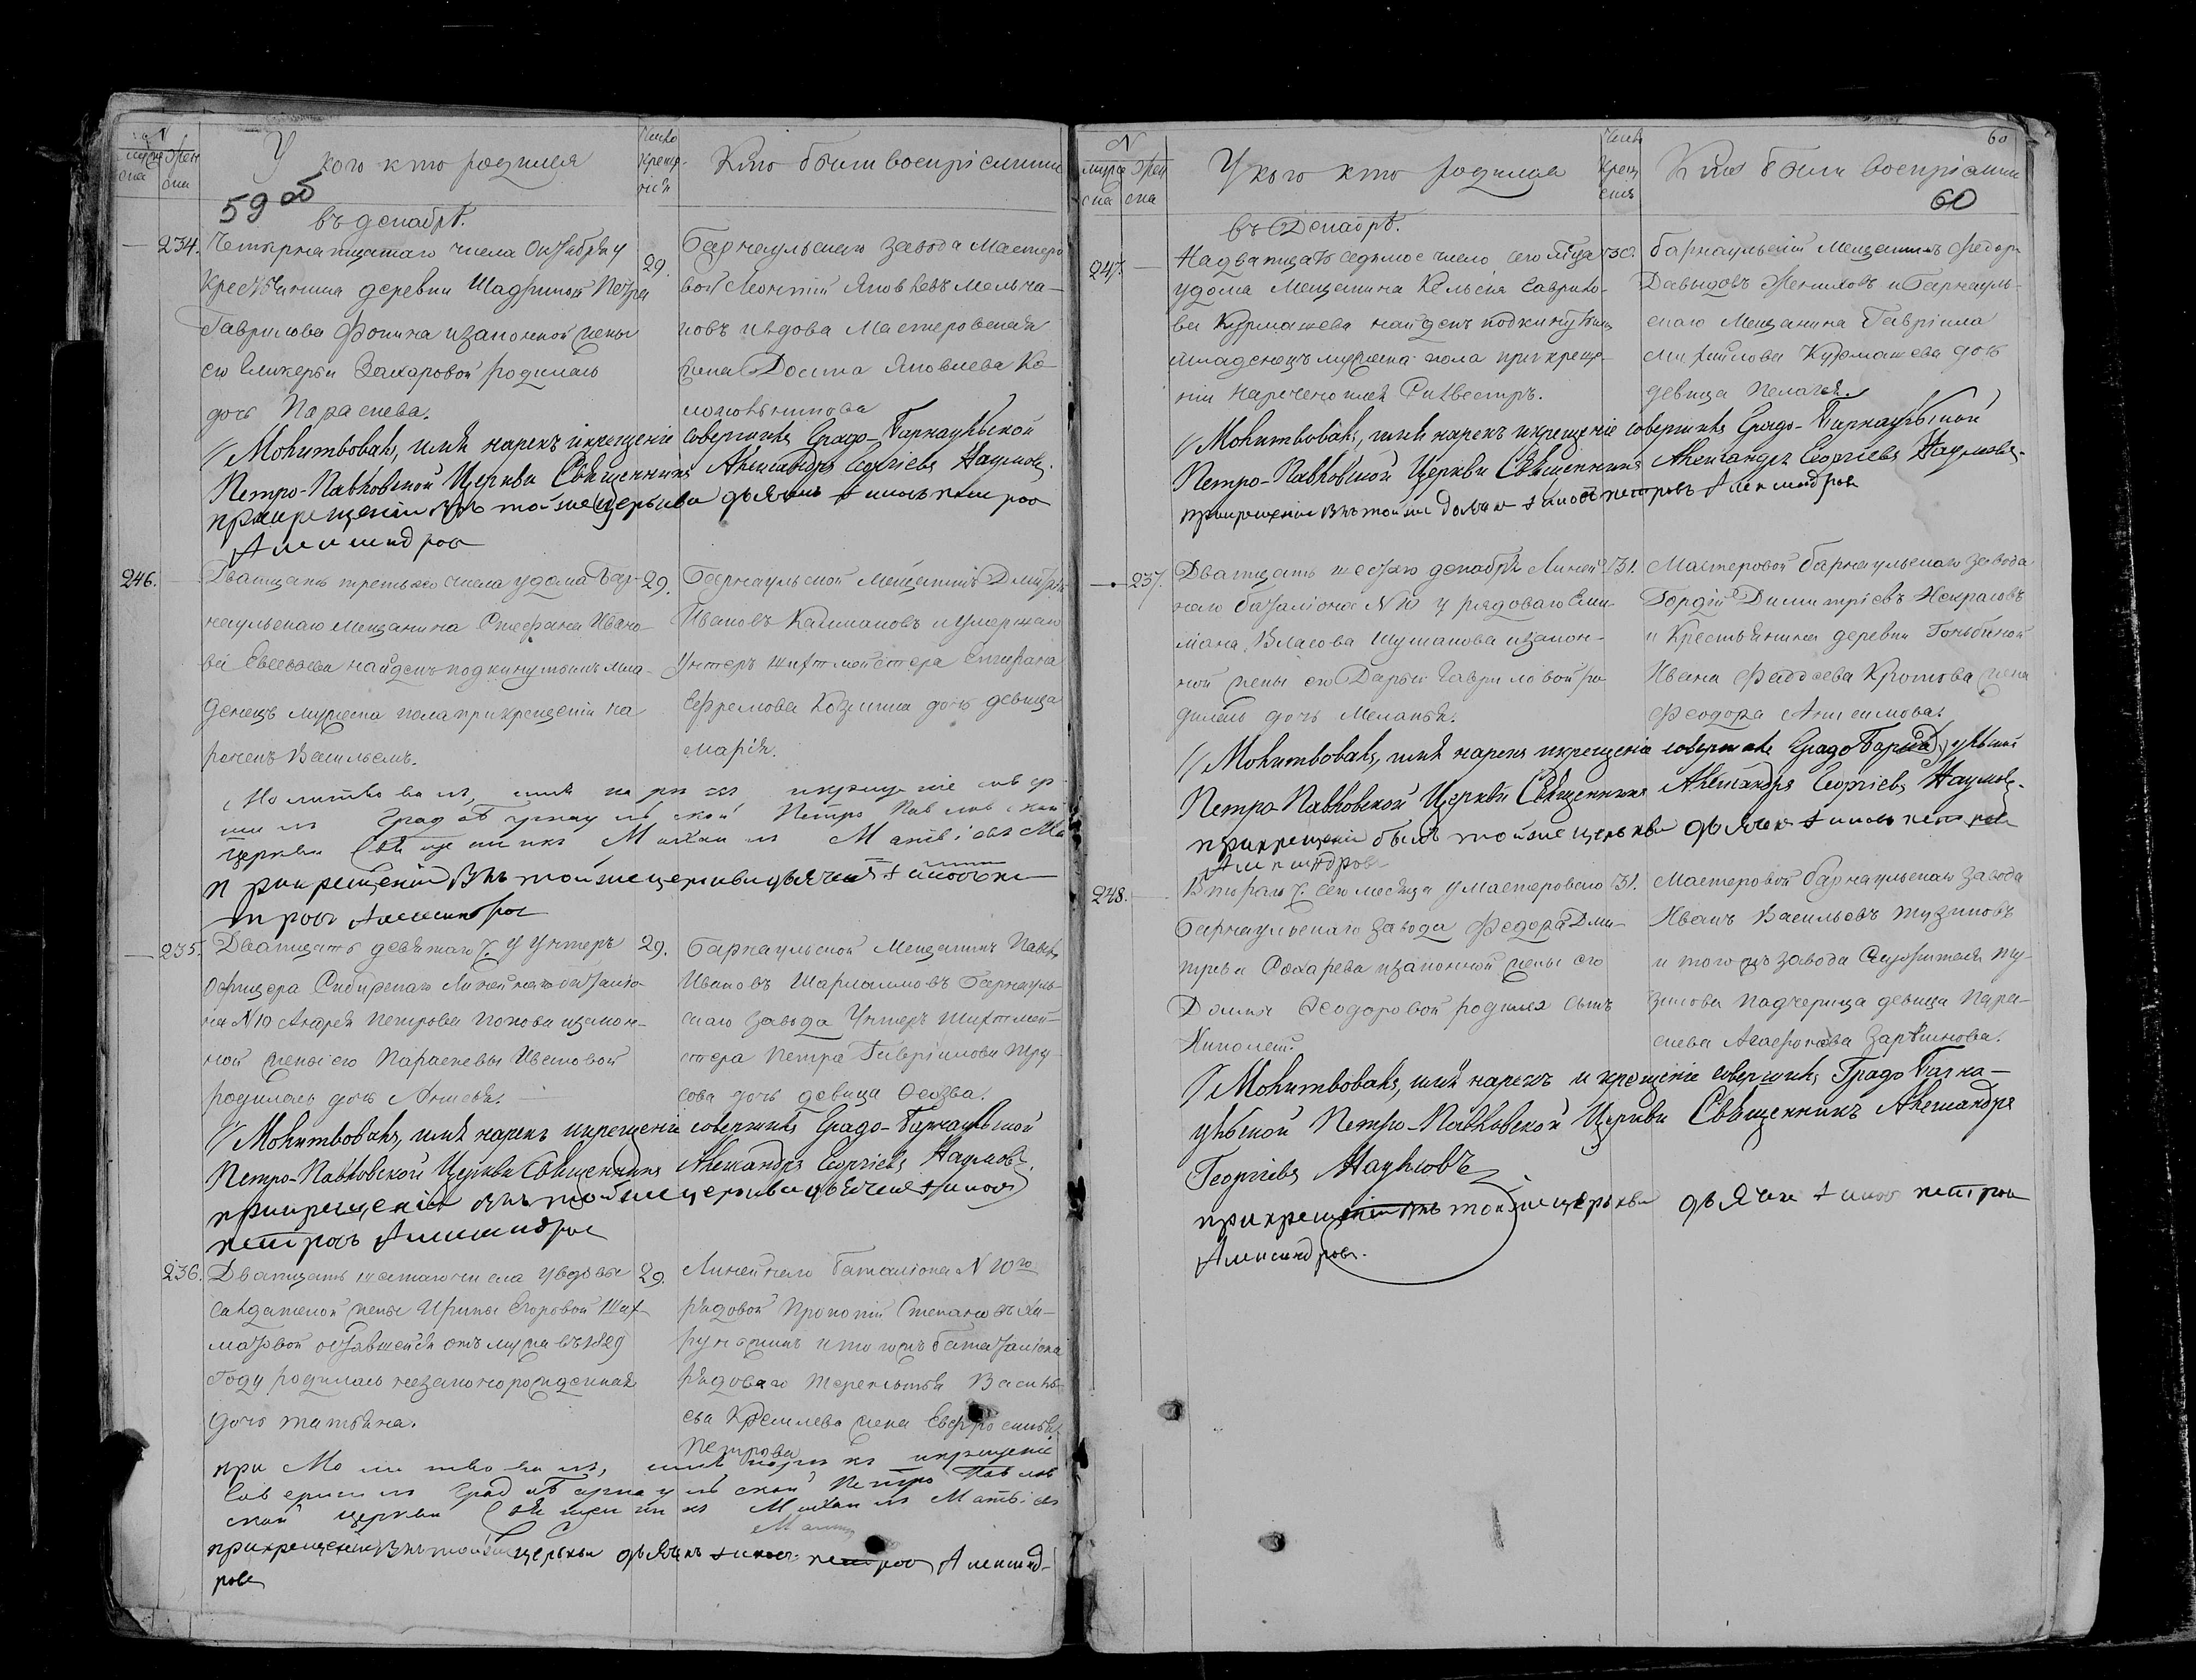 N
мужеска
женска
У кого кто родился
Число крещения
Кто были воспріемники
59 об
въ декабрѣ.
234.
Четырнатцатаго числа Октября у
Крестьянина деревни Шадриной Петра
Гаврилова Фонина и законной жены
его Гликерьи Захаровой родилась
дочь Параскева.
29.
Барнаульскаго завода Мастеро
вой Леонтій Яковлевъ Мельни-
ковъ и вдова Мастеровская
жена Досита Яковлева Ко-
локольникова
Молитвовалъ, имя нарекъ и крещеніе совершилъ Градо-Барнаульской
Петро-Павловской Церкви Священникъ Александръ Георгіевъ Наумовъ.
при крещеніи былъ той же церькви дьячекъ Іаковъ Петровъ
Александров
246.
Дватцать третьяго числа у дома Бар-
наульскаго мещанина Стефана Ивано-
ва Евсевьева найденъ подкинутымъ мла-
денецъ мужеска пола при крещеніи на
реченъ Васильемъ.
29.
Барнаульской Мещанинъ Дмитрій
Ивановъ Калмаковъ и умершаго
Унтеръ шихтмейстера
Ефремова дочь девица
Марія.
Молитвовалъ, имя нарекъ и крещеніе совер
шилъ Градобарнаульской Петро Павловской
церкви Священникъ Михаилъ Матвіевъ
при крещеніи былъ той же церкви дьячекъ Іаковъ Пе
тровъ Александров
235.
Дватцать девятаго ч. у Унтеръ
Офицера Сибирскаго Линейнаго баталіо
на N 10 Андрея Петрова Попова и закон-
ной жены его Параскевы Ивановой
родилась дочь Анисья.
29.
Барнаульской Мещанинъ Павелъ
Ивановъ Шарлаимовъ Барнауль-
скаго завода Унтеръ Шихтмей-
стера Петра Гавріилова Тру-
сова дочь девица
Молитвовалъ, имя нарекъ и крещеніе совершилъ Градо-Барнаульской
Петро-Павловской Церкви Священникъ Александръ Георгіевъ Наумовъ.
при крещеніи былъ той же церкви дьячекъ Іаков
Петровъ Александров
236.
Дватцать шестаго числа у вдовы
салдатской жены Ирины Егоровой Шах
матовой оставшейся отъ мужа въ 1829
Году родилась незаконорожденная
дочь татьяна.
29.
Линейнаго Баталіона N 10го
рядовой Прокопій Степановъ
и того жъ баталіона
рядоваго Терентья Василь-
ева жена Евфросинья
Петрова
при Молитвовалъ, имя нарекъ и крещеніе
Совершилъ Градобарнаульской Петро Павлов
ской церкви Священникъ Михаилъ Матвіевъ
при крещеніи былъ той же церькви дьячекъ Іаковъ Петров Александ-
ров
N
мужеска
женска
У кого кто родился
Число крещенія
Кто были воспріемники
60
60
въ Декабрѣ.
247.
На дватцать седьмое число сего м͠ца
у дома Мещанина Гаврило-
ва Курмашева найденъ подкинутымъ
младенецъ мужеска пола при креще-
ніи наречено имя Силвестръ.
30.
барнаульскій Мещанинъ Федоръ
Давыдовъ Жениховъ и Барнауль-
скаго Мещанина Гавріила
Михайлова Курмашева дочь
девица Пелагея.
Молитвовалъ, имя нарекъ и крещеніе совершилъ Градо-Барнаульской
Петро-Павловской Церкви Священникъ Александръ Георгіевъ Наумовъ.
при крещеніи былъ той же дьячек Іаковъ Петровъ Александров
237.
Дватцать шестаго декабря Линей
наго баталіона N 10 у рядоваго
Власова Шушакова и закон-
ной жены его Дарьи Гавриловой ро
дилась дочь Меланья.
31.
Мастеровой барнаульскаго завода
Гордій Димитріевъ Некрасовъ
и Крестьянина деревни Гоньбиной
Ивана Фаддеева Кротова жена
Феодора Анисимова.
Молитвовалъ, имя нарекъ и крещеніе совершилъ Градо Барнаульской
Петро-Павловской Церкви Священникъ Александръ Георгіевъ Наумовъ.
при крещеніи былъ той же церькви дьячек Іаковъ Петров
Александров
248.
Втораго ч. сего месяца у Мастероваго
барнаульскаго завода Федора Дми-
тріева Сохарева и законной жены его
Домны Феодоровой родился сынъ
Ипполит.
31.
Мастеровой барнаульскаго завода
Иванъ Васильевъ Тузиковъ
и того жъ завода Служителя Ту-
зикова падчерица девица Пара-
скева Агафонова
Молитвовалъ, имя нарекъ и крещеніе совершилъ Градо Барна-
ульской Петро-Павловской Церкви Священникъ Александръ
Георгіевъ Наумовъ.
при крещеніи былъ той же церькви дьячек Іаков Петров
Александров.